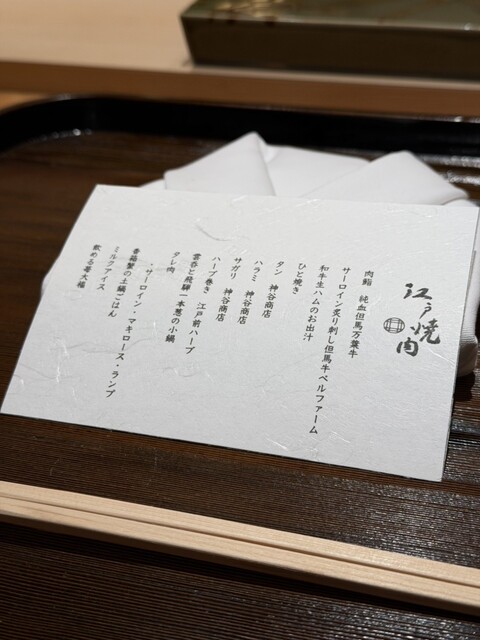 江戸焼肉
肉鮨 純血但馬万葉牛
サーロイン炙り刺し但馬牛ベルファーム
和牛生ハムのお出汁
ひと焼き
タン 神谷商店
ハラミ 神谷商店
サガリ 神谷商店
ハーブ巻き 江戸前ハーブ
雲呑と飛騨一本葱の小鍋
タレ肉
・サーロイン・マキロース・ランプ
香箱蟹の土鍋ごはん
ミルクアイス
飲める苺大福